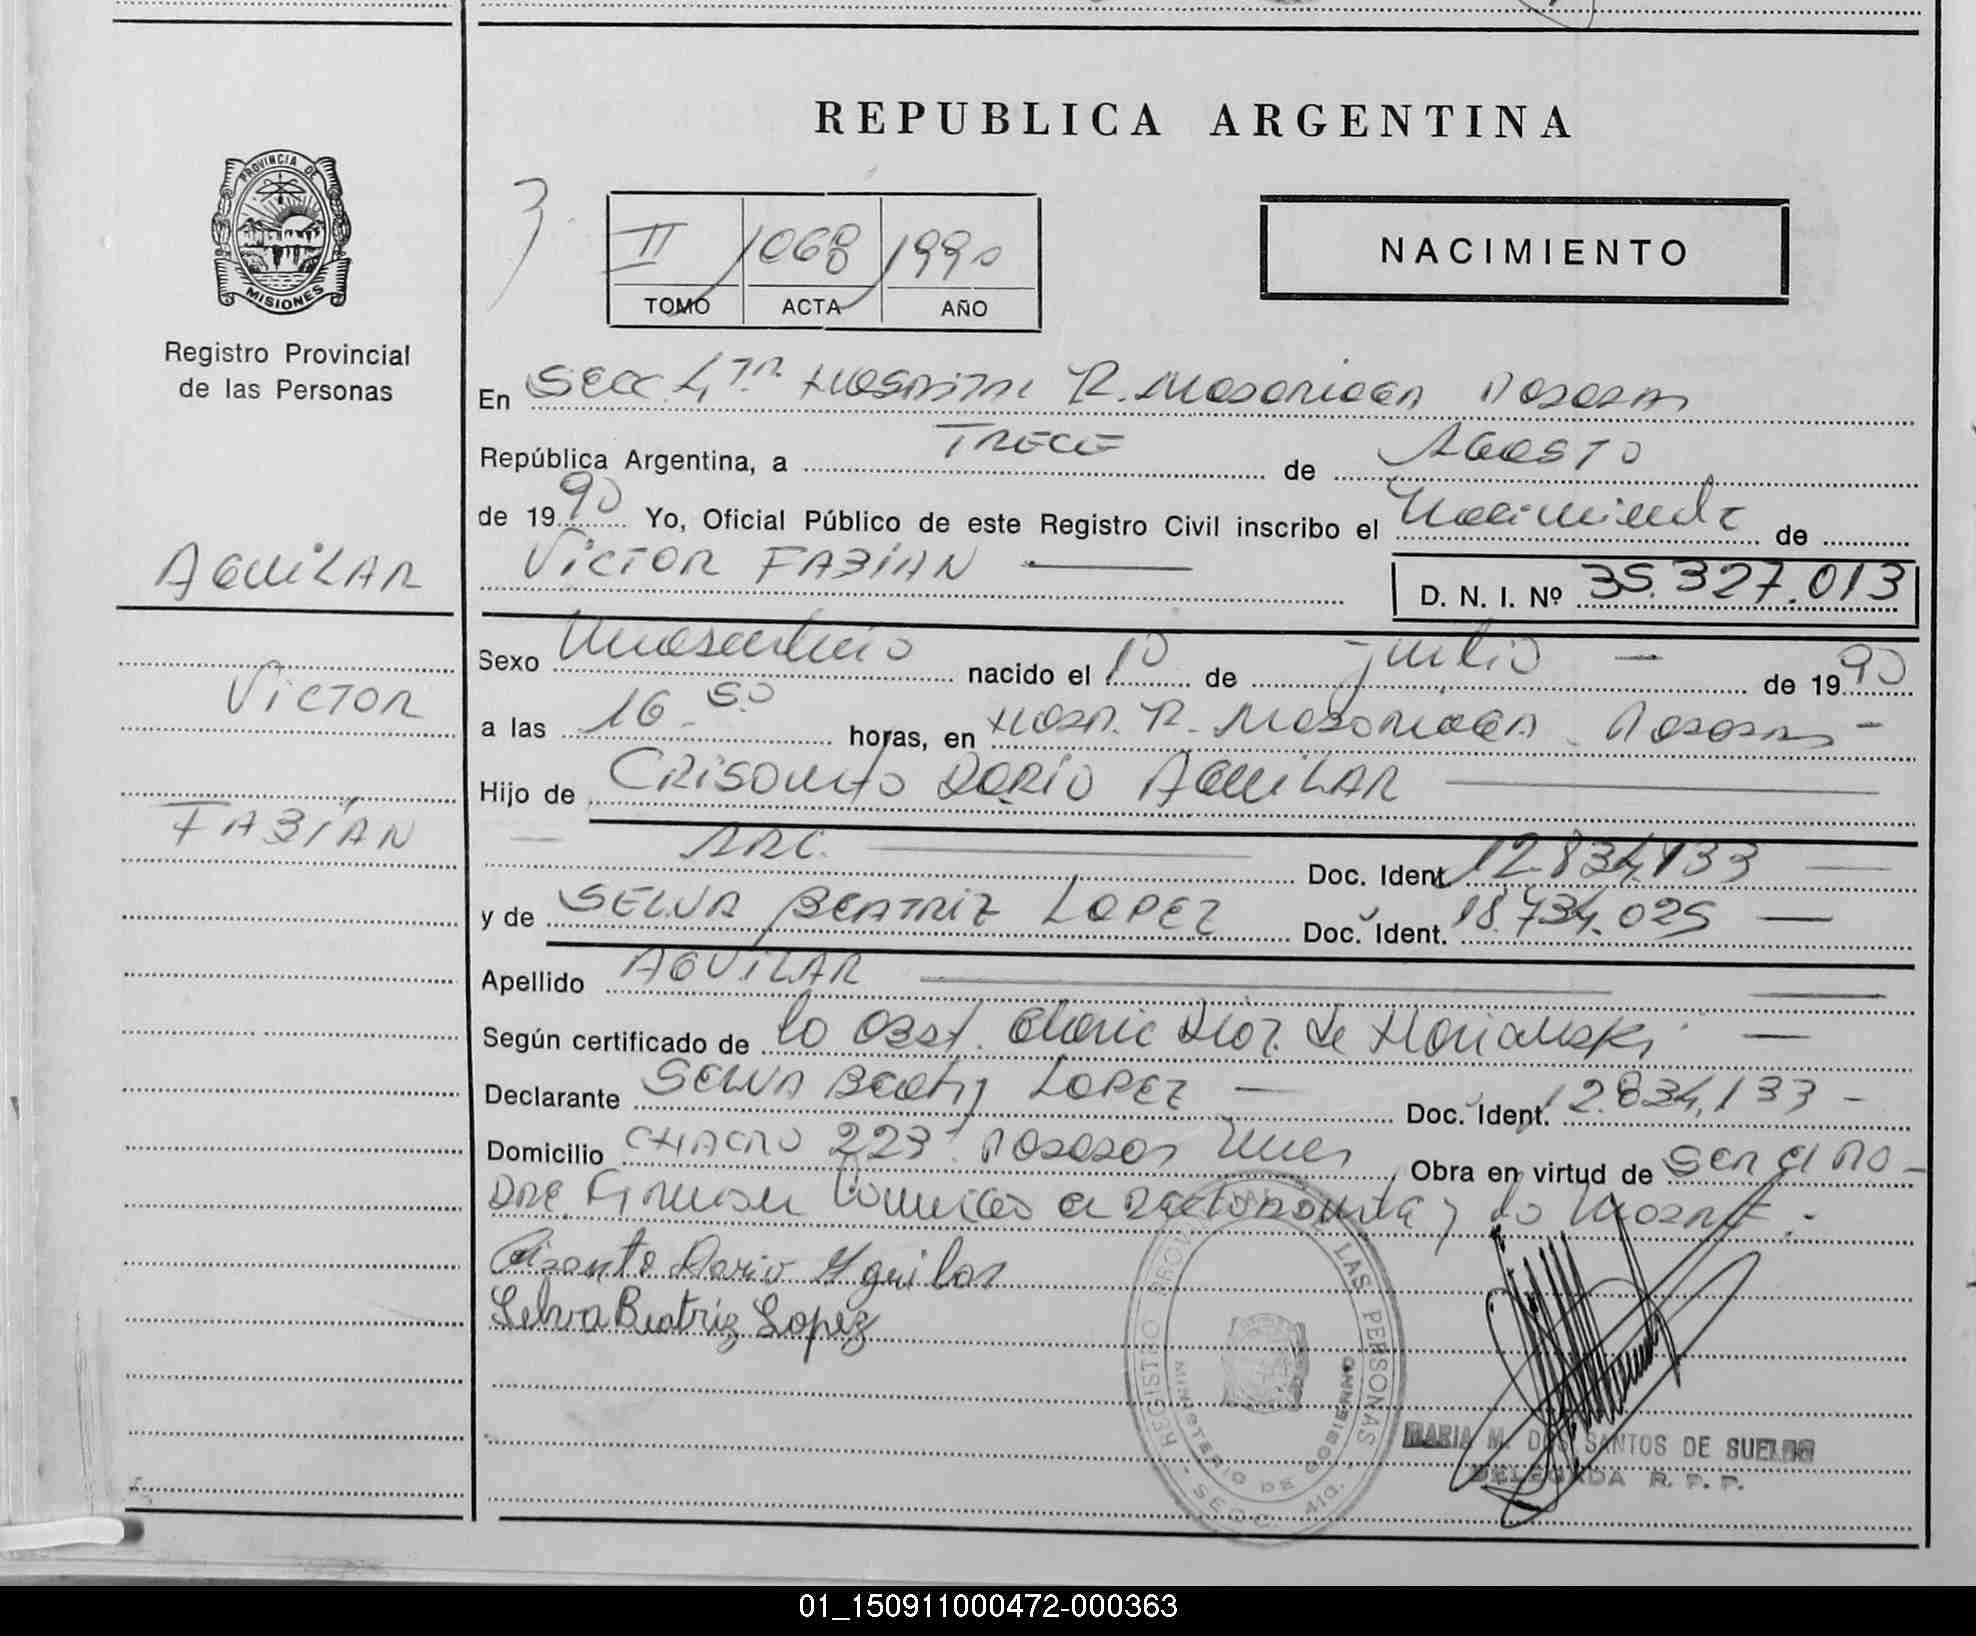 REPUBLICA ARGENTINA
PROVINCIA DE
MISIONES
Registro Provincial
de las Personas
II 1068 1990
TOMO ACTA AÑO
NACIMIENTO
En Secc. 4ta Hospital R. Madariaga Posadas
República Argentina, a TRECE de AGOSTO
de 1990 Yo, Oficial Público de este Registro Civil inscribo el Nacimiento de
VICTOR FABIAN
D. N. I. Nº 35.327.013
AGUILAR
VICTOR
FABIÁN
Sexo Masculino nacido el 10 de julio de 1990
a las 16.50 horas, en Hosp. R. Madariaga Posadas
Hijo de DARIO AGUILAR
ARG. Doc. Ident. 12.834.133
y de SELVA BEATRIZ LOPEZ Doc. Ident. 18.734.025
Apellido AGUILAR
Según certificado de la Obst. de
Declarante SELVA Beatriz LOPEZ Doc. Ident. 12.834.133
Domicilio CHACRA 223 Posadas Mnes Obra en virtud de ser el PA-
DRE Firman el y la
Dario Aguilar
Selva Beatriz Lopez
REGISTRO PROV LAS PERSONAS
MINISTERIO DE GOBIERNO
SECC. 4ta.
MARIA M. DOS SANTOS DE
DELEGADA R. P. P.
01_150911000472-000363